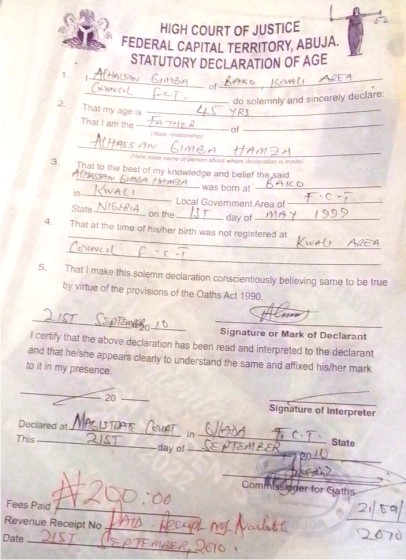 HIGH COURT OF JUSTICE
FEDERAL CAPITAL TERRITORY, ABUJA.
STATUTORY DECLARATION OF AGE
1. I, ALHASSAN GIMBA of BAKO, KWALI AREA
COUNCIL F.C.T. do solemnly and sincerely declare:
2. That my age is 45 YRS
That I am the FATHER of
(State relationship)
ALHASSAN GIMBA HAMZA
(Here state name of person about whom declaration is made)
3. That to the best of my knowledge and belief the said
ALHASSAN GIMBA HAMZA was born at BAKO
in KWALI Local Government Area of F.C.T
State NIGERIA on the 1ST day of MAY 1999
4. That at the time of his/her birth was not registered at
KWALI AREA
COUNCIL F.C.T
5. That I make this solemn declaration conscientiously believing same to be true
by virtue of the provisions of the Oaths Act 1990.
21ST SEPTEMBER 2010
Signature or Mark of Declarant
I certify that the above declaration has been read and interpreted to the declarant
and that he/she appears clearly to understand the same and affixed his/her mark
to it in my presence.
20
Signature of Interpreter
Declared at MAGISTRATE COURT in GWADA F.C.T. State
This 21ST day of SEPTEMBER 2010
Commissioner for Oaths
21/09/
2010
Fees Paid ₦200:00
Revenue Receipt No PAID Receipt not Available
Date 21ST SEPTEMBER, 2010.